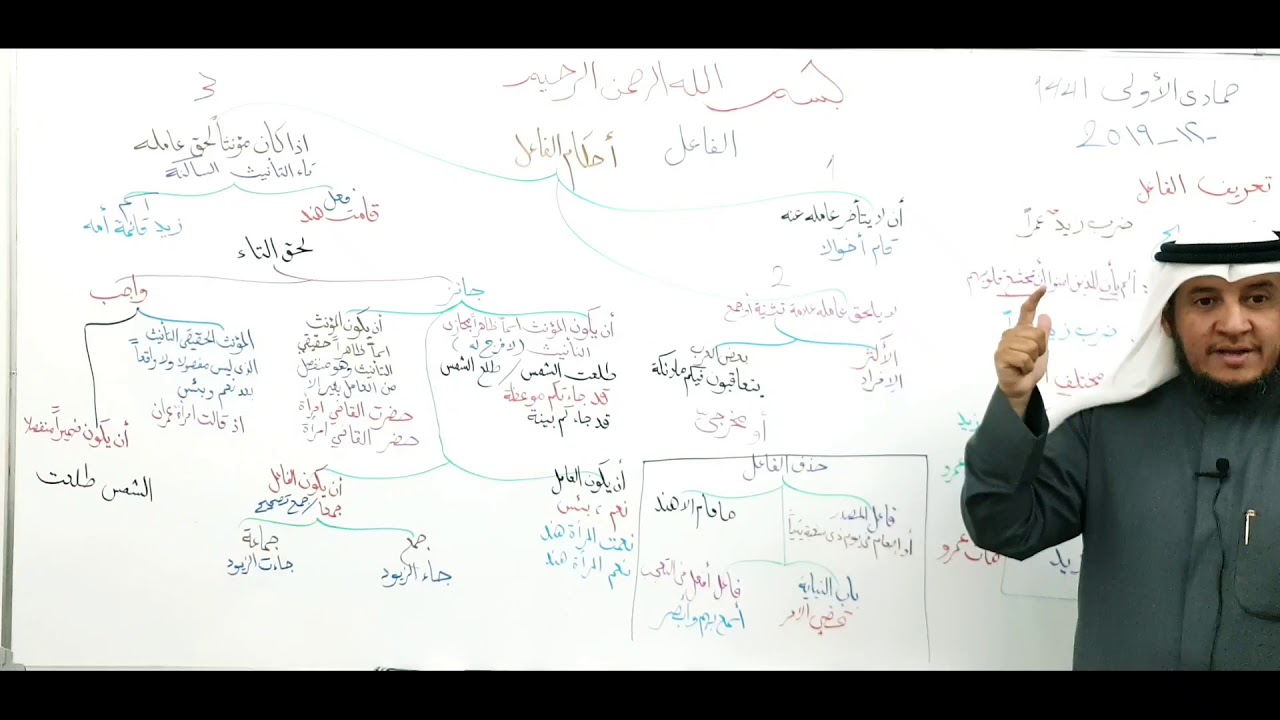 بسم الله الرحمن الرحيم
جمادى الأولى ١٤٤١
٢٠١٩-١٢-
الفاعل
أحكام الفاعل
تعريف الفاعل
ضرب زيدٌ عمراً
ألم يأن للذين آمنوا أن تخشع قلوبهم
ضرب
مختلف
زيد
عمرو
1
أن لا يتأخر عامله عنه
قام أخواك
2
لا يلحق عامله علامة تثنية أو جمع
الأكثر
الإفراد
بعض العرب
يتعاقبون فيكم ملائكة
أو مخرجيّ
3
اذا كان مؤنثاً لحق عامله
تاء التأنيث الساكنة
فعل
قامت هند
اسم
زيد قائمة أمه
لحق التاء
جائز
أن يكون المؤنث اسماً ظاهراً مجازي
التأنيث (لا فرج له)
طلعت الشمس / طلع الشمس
قد جاءتكم موعظة
قد جاءكم بينة
أن يكون المؤنث
اسماً ظاهراً حقيقي
التأنيث وهو منفصل
من العامل بغير إلا
حضرت القاضي امرأة
حضر القاضي امرأة
أن يكون العامل
نعم ، بئس
نعمت المرأة هند
نعم المرأة هند
أن يكون الفاعل
جمعا
جمع
جاء الزيود
جماعة
جاءت الزيود
واجب
المؤنث الحقيقي التأنيث
الذي ليس مفصولا ولا واقعاً
بعد نعم وبئس
اذ قالت امرأة عمران
أن يكون ضميراً متصلا
الشمس طلعت
حذف الفاعل
فاعل المصدر
أو إطعام في يوم ذي مسغبة يتيماً
ما قام إلا هند
باب النيابة
قضي الأمر
فاعل أفعل في التعجب
أسمع بهم وأبصر